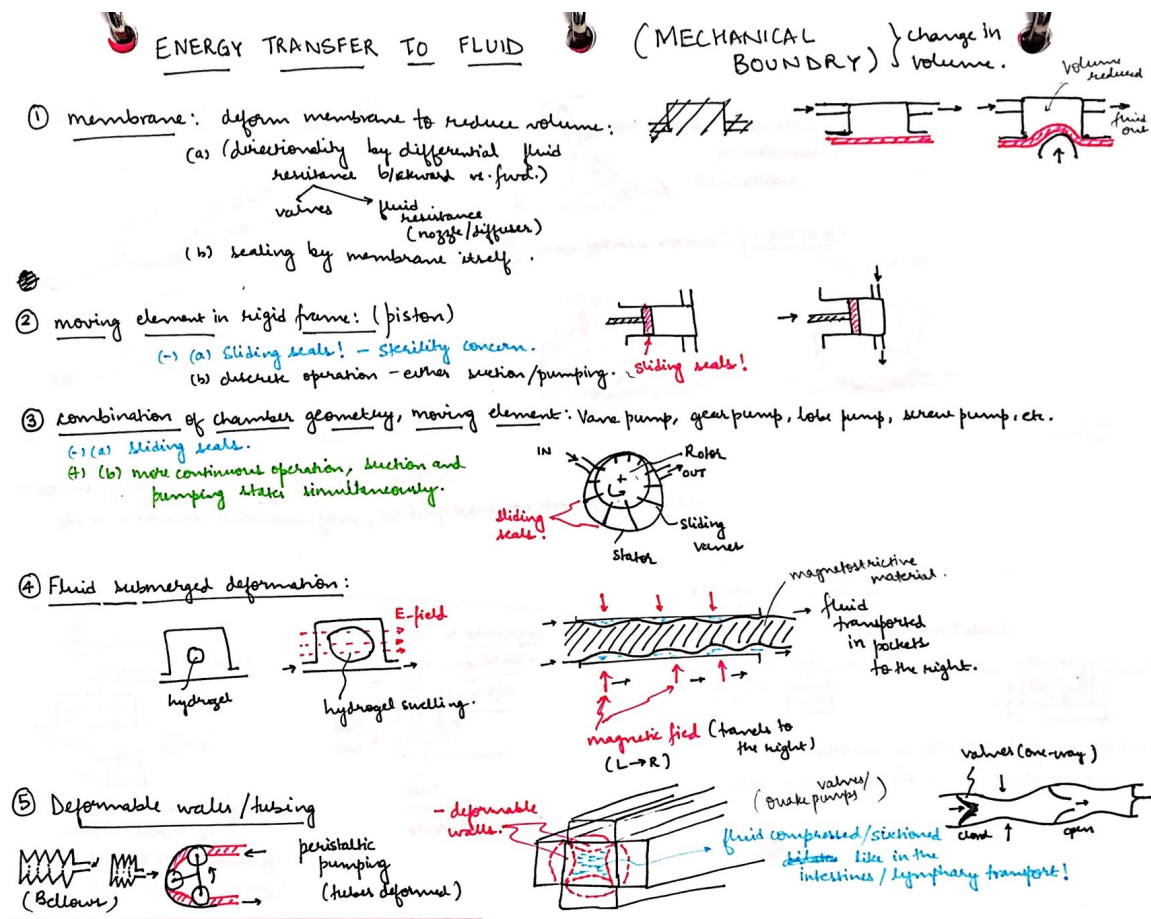 ENERGY TRANSFER TO FLUID (MECHANICAL BOUNDRY) } change in volume.
① membrane: deform membrane to reduce volume:
(a) (directionality by differential fluid
resistance b/akward vs. fwd.)
valves fluid resistance (nozzle/diffuser)
(b) sealing by membrane itself.
volume reduced
fluid out
② moving element in rigid frame: (piston)
(-) (a) Sliding seals! - sterility concern.
(b) discrete operation - either suction/pumping.
sliding seals!
③ combination of chamber geometry, moving element: Vane pump, gear pump, lobe pump, screw pump, etc.
(-) (a) sliding seals.
(+) (b) more continuous operation, suction and
pumping states simultaneously.
IN
Rotor
OUT
sliding seals!
sliding vanes
stator
④ Fluid submerged deformation:
hydrogel
E-field
hydrogel swelling.
magnetostrictive material.
fluid transported in pockets to the right.
magnetic fied (travels to the right)
(L→R)
⑤ Deformable walls/tubing
(Bellows)
peristaltic pumping (tubes deformed)
- deformable walls.
(Quake pumps/valves)
fluid compressed/suctioned
like in the
intestines/lymphary transport!
valves (one-way)
closed
open